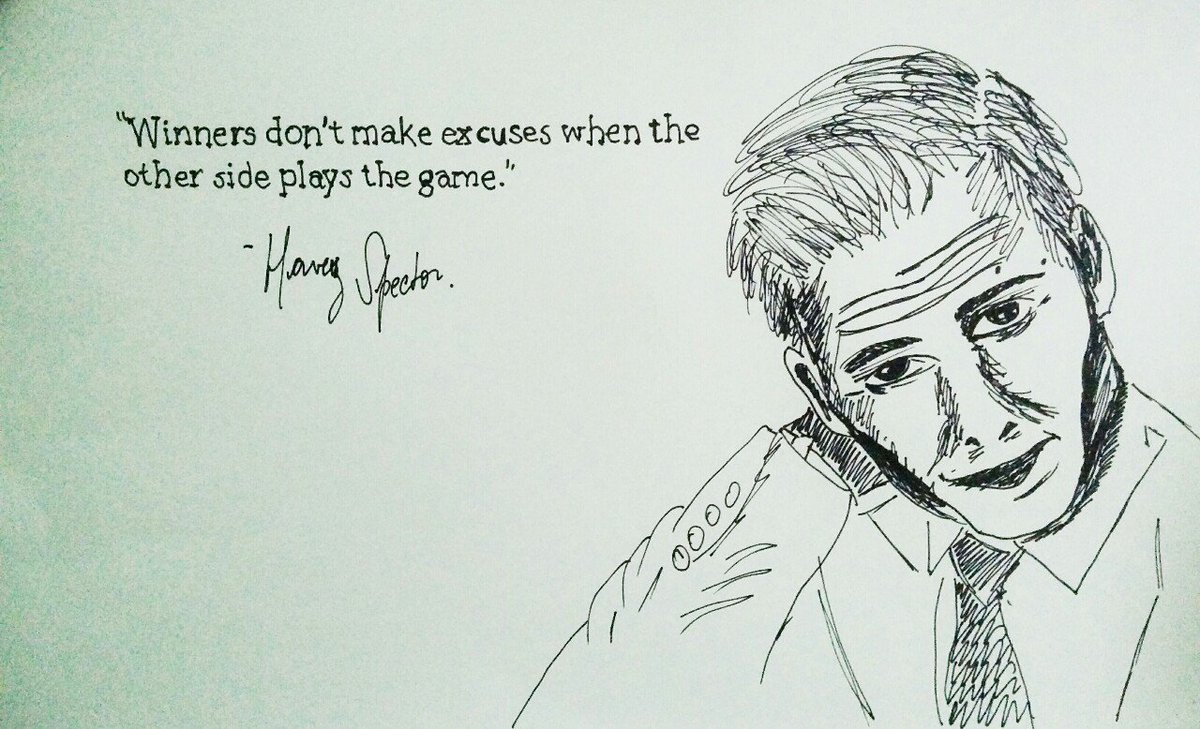 "Winners don't make excuses when the
other side plays the game."
- Harvey Specter.